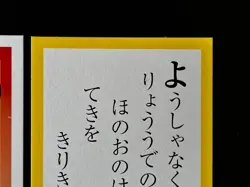 ようしゃなく
りょううでの
ほのおのけ
てきを
きりき